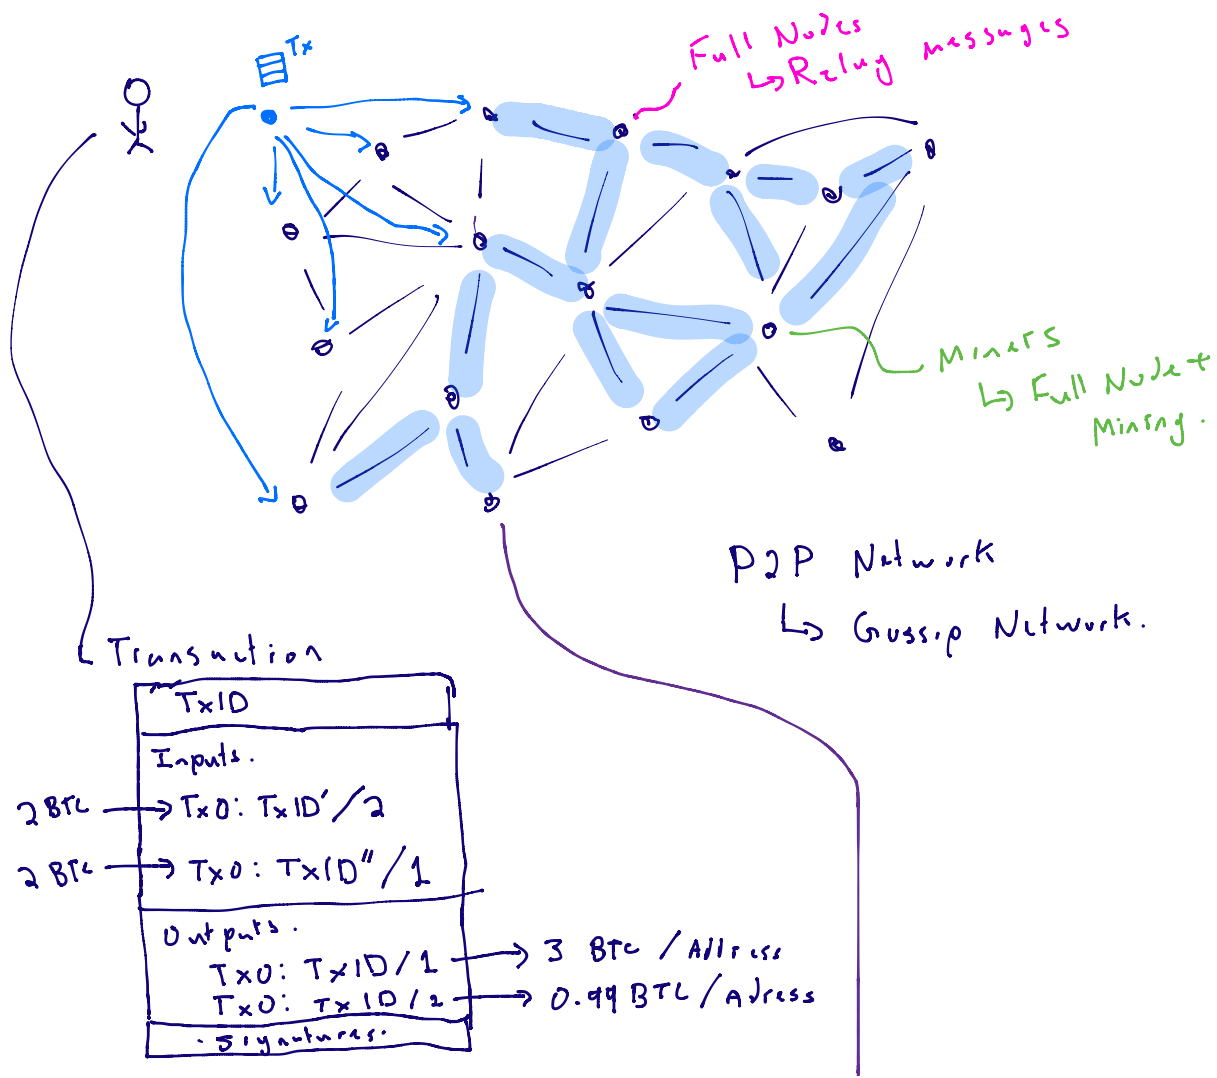 Tx
Full Nodes
↳ Relay messages
Miners
↳ Full Node +
Mining.
P2P Network
↳ Gossip Network.
Transaction
TxID
Inputs.
2 BTC → TxO: TxID'/2
2 BTC → TxO: TxID"/1
Outputs.
TxO: TxID/1 → 3 BTC /Address
TxO: TxID/2 → 0.99 BTC /Adress
· Signatures.